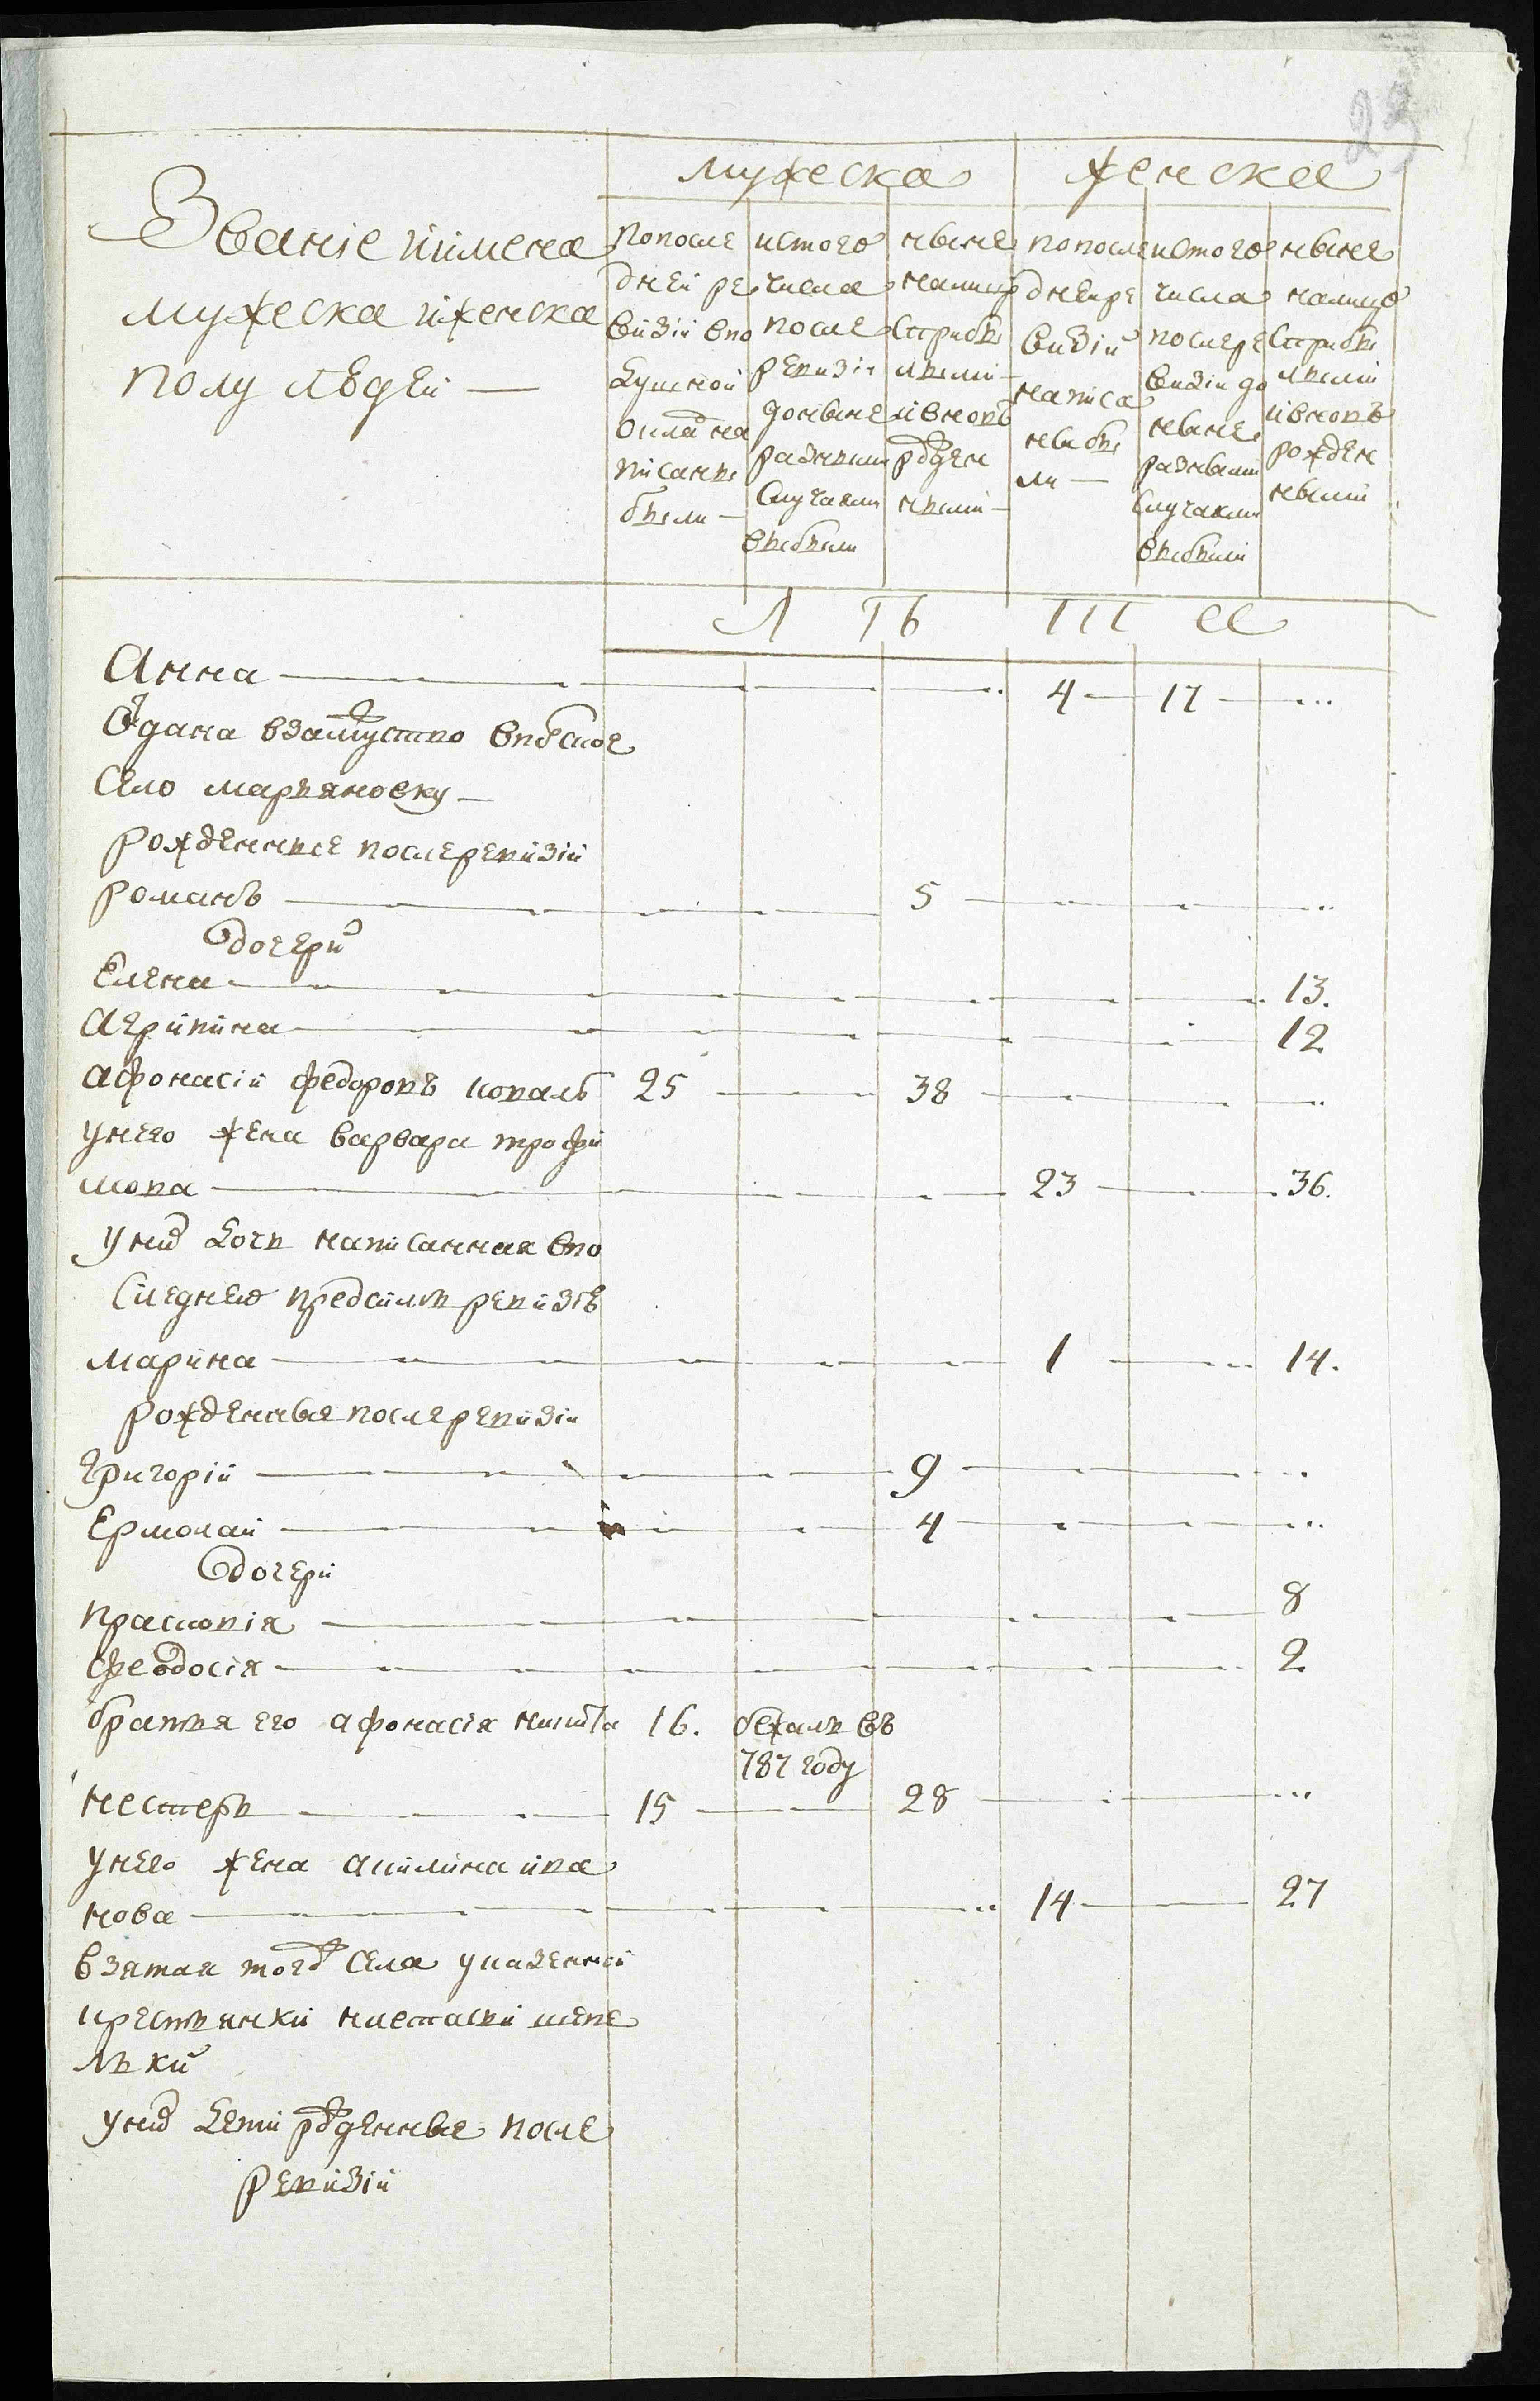 23
мужеска женска
Званіе иимена
мужеска иженска
полу людей —
попосле
дней ре
визіи впо
душной
окладъ на
писаны
были —
истого
числа
после
ревизіи
доныне
разными
случаями
выбыли
ныне
налицо
сприбы
лыми
ивновь
рожден
ными —
попосле
днейре
визіи
написа
ны бы
ли —
истого
числа
послере
визіи до
ныне
разными
случаями
выбыли
ныне
налицо
сприбы
лыми
ивновь
рожден
ными
Л Ѣ Т А
Анна — 4 — 17 — ...
отдана взамужство
село марьяновку —
рожденные послеревизіи
романъ — 5 — ..
дочери
Елена — 13.
Агрипина — 12
афонасій федоровъ коваль 25 — 38 — ..
унего жена варвара трофи
мова — 23 — 36.
уних дочь написанная впо
следнею предсимъ ревизіѣ
марина — 1 — 14.
рожденные послеревизіи
Григорій — 9 — ..
Ермолай — 4 — ...
дочери
прасковія — 8
феодосія — 2
братья его афонасія никита 16. бежалъ въ
787 году
нестеръ — 15 — 28 — ...
унего жена акилина ива
нова — 14 — 27
взятая тогожъ села указенной
крестьянки
лки
уних дети рожденные после
ревизіи